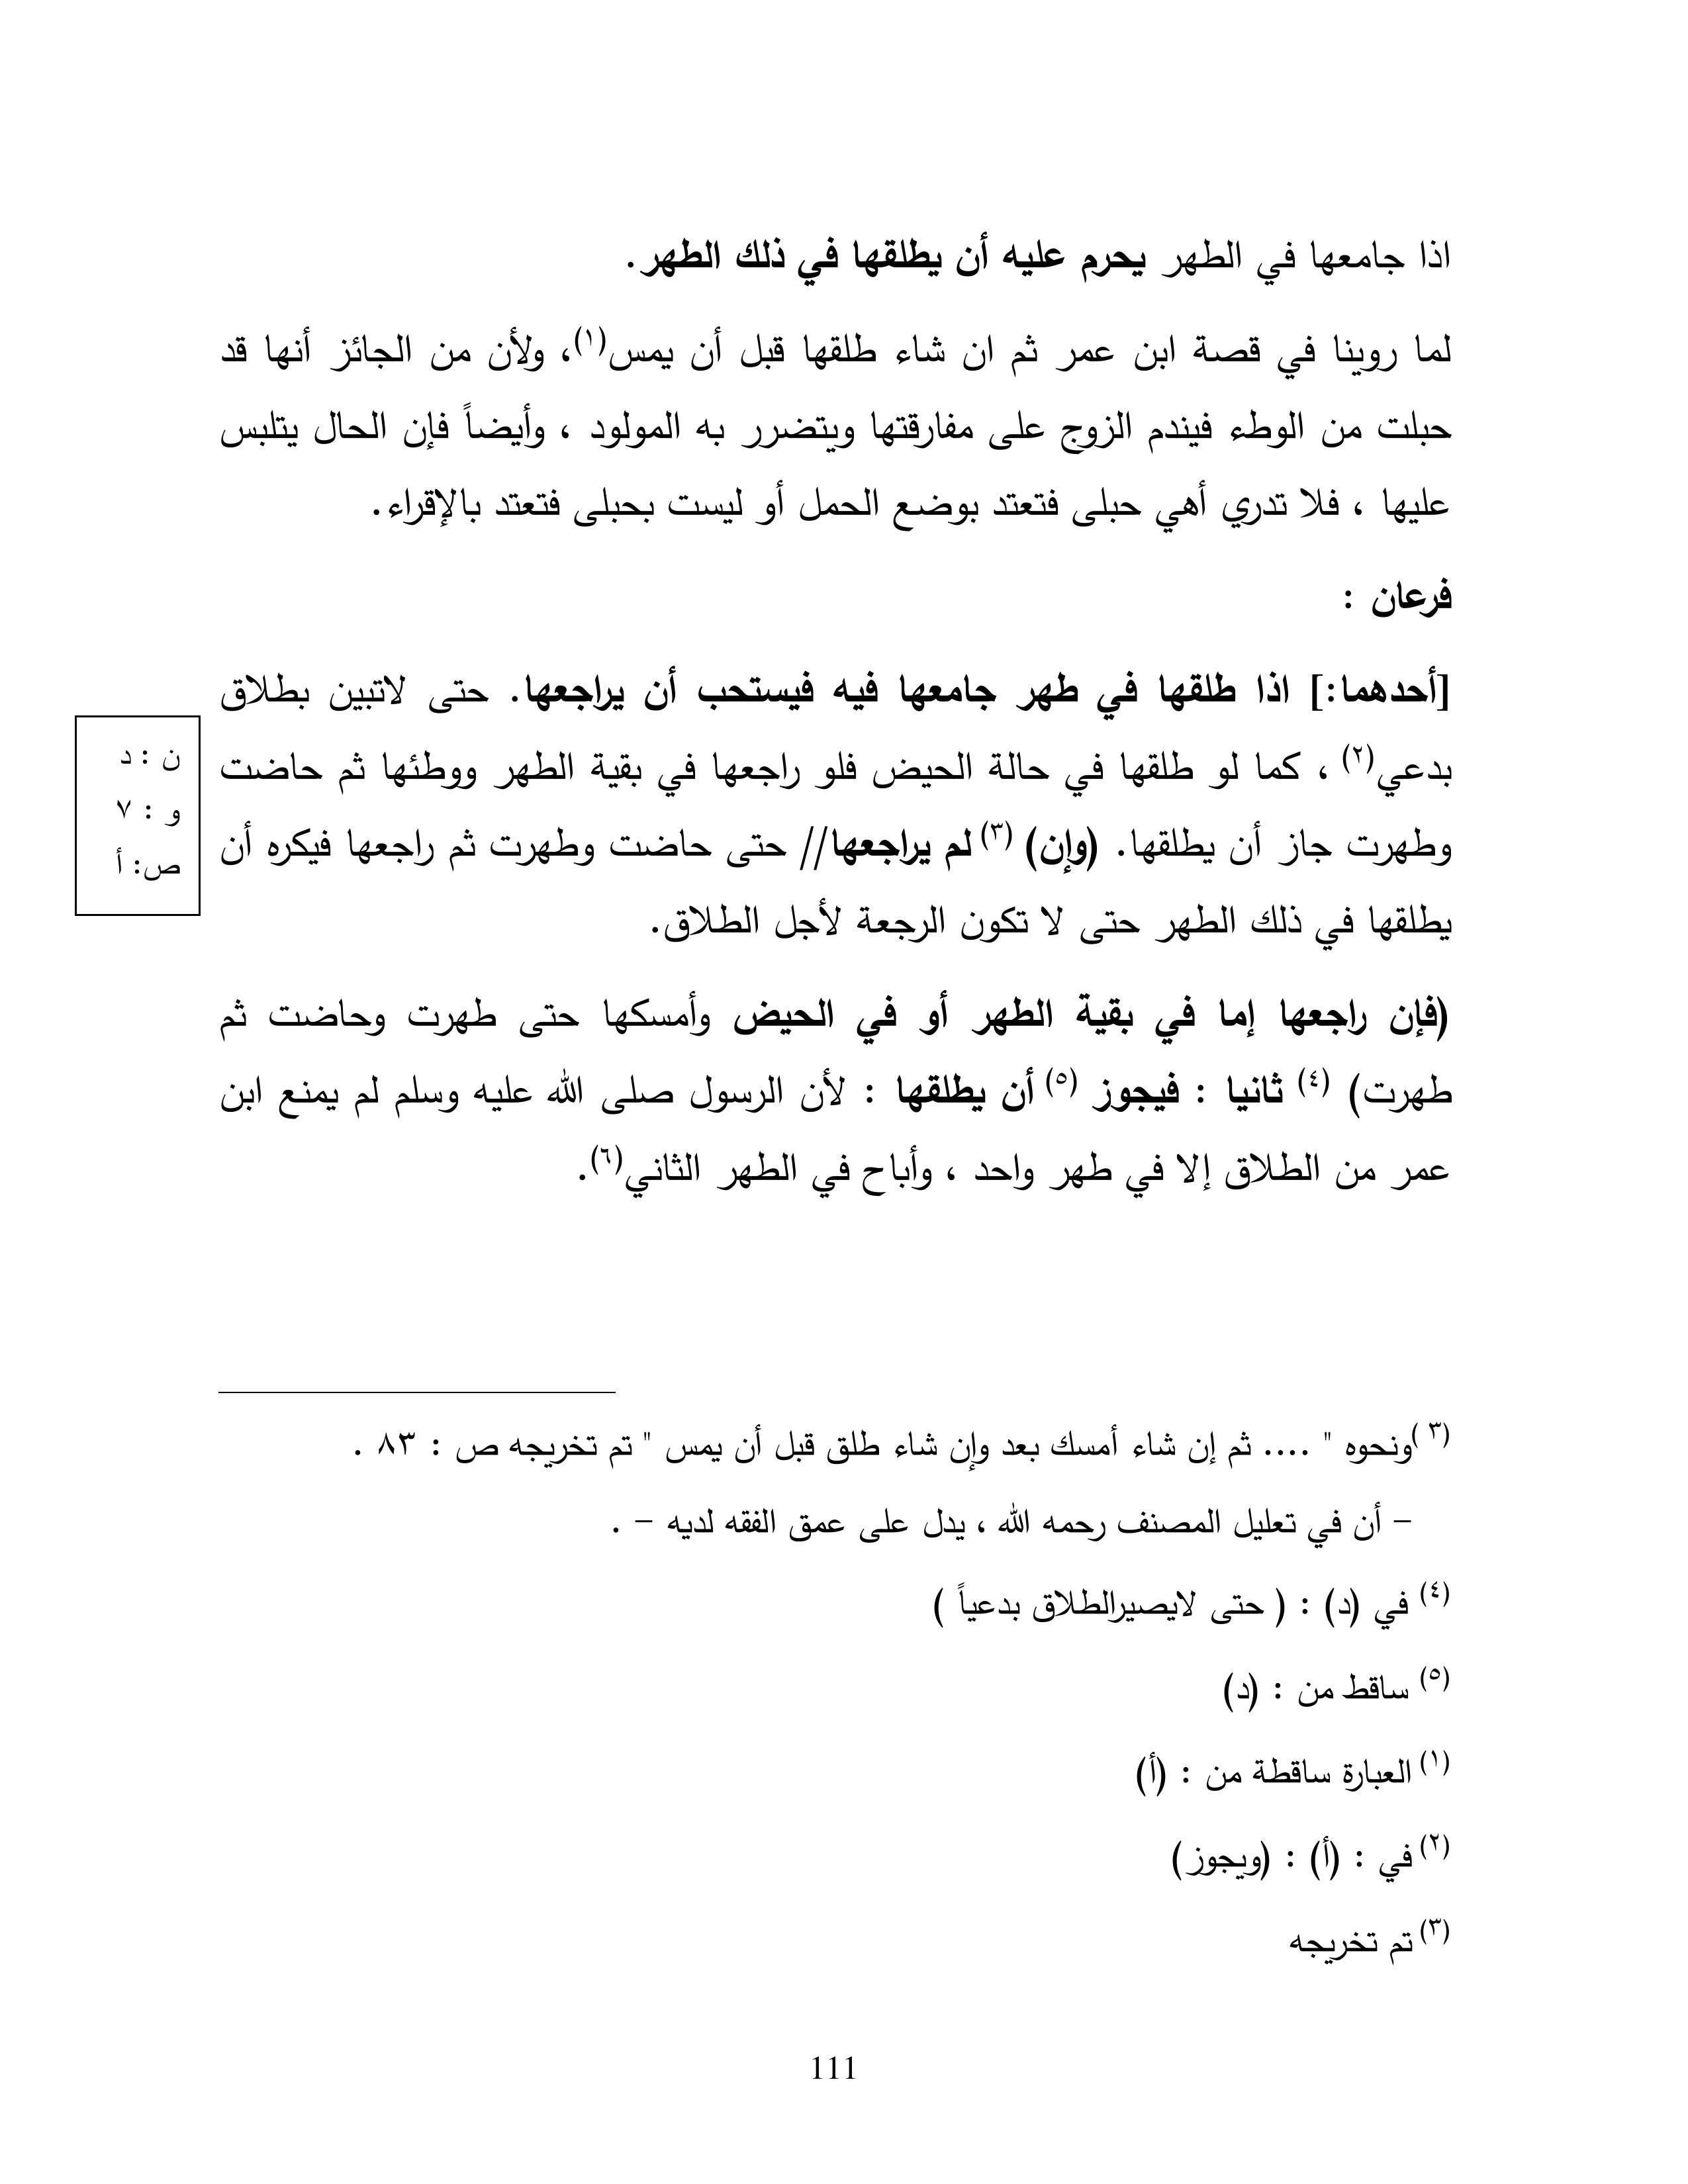 اذا جامعها في الطهر يحرم عليه أن يطلقها في ذلك الطهر.
لما روينا في قصة ابن عمر ثم ان شاء طلقها قبل أن يمس(١)، ولأن من الجائز أنها قد
حبلت من الوطء فيندم الزوج على مفارقتها ويتضرر به المولود ، وأيضاً فإن الحال يتلبس
عليها ، فلا تدري أهي حبلى فتعتد بوضع الحمل أو ليست بحبلى فتعتد بالإقراء.
فرعان :
[أحدهما:] اذا طلقها في طهر جامعها فيه فيستحب أن يراجعها. حتى لاتبين بطلاق
بدعي(٢) ، كما لو طلقها في حالة الحيض فلو راجعها في بقية الطهر ووطئها ثم حاضت
وطهرت جاز أن يطلقها. (وإن) (٣) لم يراجعها// حتى حاضت وطهرت ثم راجعها فيكره أن
يطلقها في ذلك الطهر حتى لا تكون الرجعة لأجل الطلاق.
ن : د
و : ٧
ص: أ
(فإن راجعها إما في بقية الطهر أو في الحيض وأمسكها حتى طهرت وحاضت ثم
طهرت) (٤) ثانيا : فيجوز (٥) أن يطلقها : لأن الرسول صلى الله عليه وسلم لم يمنع ابن
عمر من الطلاق إلا في طهر واحد ، وأباح في الطهر الثاني(٦).
(٣ )ونحوه " .... ثم إن شاء أمسك بعد وإن شاء طلق قبل أن يمس " تم تخريجه ص : ٨٣ .
– أن في تعليل المصنف رحمه الله ، يدل على عمق الفقه لديه – .
(٤) في (د) : ( حتى لايصيرالطلاق بدعياً )
(٥) ساقط من : (د)
(١) العبارة ساقطة من : (أ)
(٢) في : (أ) : (ويجوز)
(٣) تم تخريجه
111